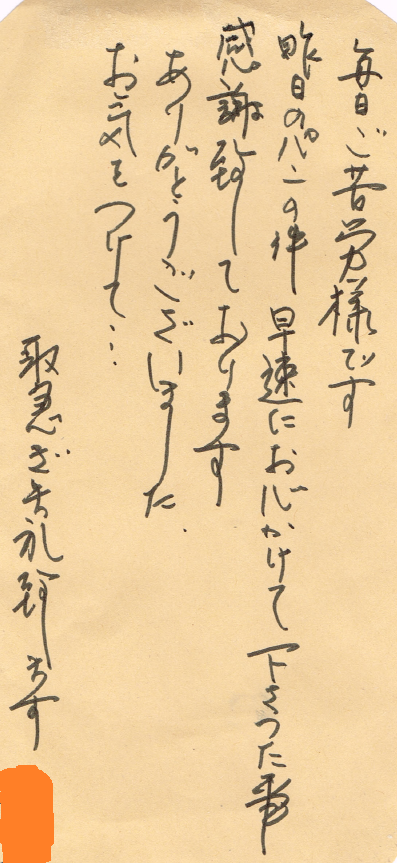 毎日ご苦労様です
昨日のパンの件 早速にお心がけて下さった事
感謝致しております
ありがとうございました.
お気をつけて…
取急ぎお礼致します